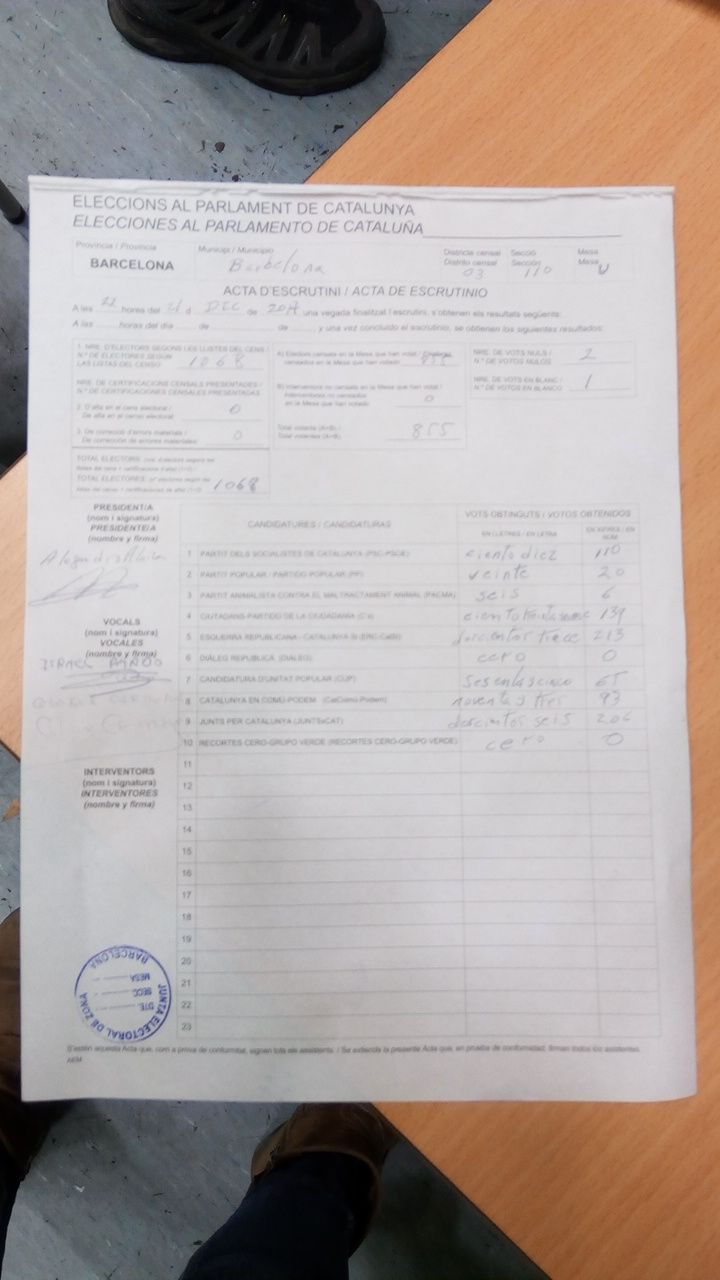 ELECCIONS AL PARLAMENT DE CATALUNYA
ELECCIONES AL PARLAMENTO DE CATALUÑA
Província / Provincia
BARCELONA
Municipi / Municipio
Barcelona
Districte censal
Distrito censal
03
Secció
Sección
110
Mesa
Mesa U
ACTA D'ESCRUTINI / ACTA DE ESCRUTINIO
A les 22 hores del 21 d DEC de 2017 una vegada finalitzat l'escrutini, s'obtenen els resultats següents:
A las horas del día de de y una vez concluido el escrutinio, se obtienen los siguientes resultados:
1. NRE. D'ELECTORS SEGONS LES LLISTES DEL CENS /
N.º DE ELECTORES SEGÚN
LAS LISTAS DEL CENSO 1068
NRE. DE CERTIFICACIONS CENSALS PRESENTADES /
N.º DE CERTIFICACIONES CENSALES PRESENTADAS
2. D'alta en el cens electoral /
De alta en el censo electoral 0
3. De correcció d'errors materials /
De corrección de errores materiales 0
TOTAL ELECTORS:
TOTAL ELECTORES: 1068
A) Electors censats en la Mesa que han votat /
censados en la Mesa que han votado
B) Interventors no censats en la Mesa que han votat /
Interventores no censados
en la Mesa que han votado 0
Total votants (A+B) /
Total votantes (A+B) 855
NRE. DE VOTS NULS /
N.º DE VOTOS NULOS 2
NRE. DE VOTS EN BLANC /
N.º DE VOTOS EN BLANCO 1
PRESIDENT/A
(nom i signatura)
PRESIDENTE/A
(nombre y firma)
VOCALS
(nom i signatura)
VOCALES
(nombre y firma)
INTERVENTORS
(nom i signatura)
INTERVENTORES
(nombre y firma)
CANDIDATURES / CANDIDATURAS
VOTS OBTINGUTS / VOTOS OBTENIDOS
EN LLETRES / EN LETRA
EN XIFRES / EN NÚM.
1 PARTIT DELS SOCIALISTES DE CATALUNYA (PSC-PSOE) ciento diez 110
2 PARTIT POPULAR / PARTIDO POPULAR (PP) veinte 20
3 PARTIT ANIMALISTA CONTRA EL MALTRACTAMENT ANIMAL (PACMA) seis 6
4 CIUTADANS-PARTIDO DE LA CIUDADANÍA (C's) 139
5 ESQUERRA REPUBLICANA - CATALUNYA SÍ (ERC-CatSí) doscientos trece 213
6 DIÀLEG REPUBLICÀ (DIÀLEG) cero 0
7 CANDIDATURA D'UNITAT POPULAR (CUP) sesentascinco 65
8 CATALUNYA EN COMÚ-PODEM (CatComú-Podem) noventa y tres 93
9 JUNTS PER CATALUNYA (JUNTSxCAT) doscientos seis 206
10 RECORTES CERO-GRUPO VERDE (RECORTES CERO-GRUPO VERDE) cero 0
11
12
13
14
15
16
17
18
19
20
21
22
23
JUNTA ELECTORAL DE ZONA
DTE.
SECC.
MESA
BARCELONA
S'estén aquesta Acta que, com a prova de conformitat, signen tots els assistents. / Se extiende la presente Acta que, en prueba de conformidad, firman todos los asistentes.